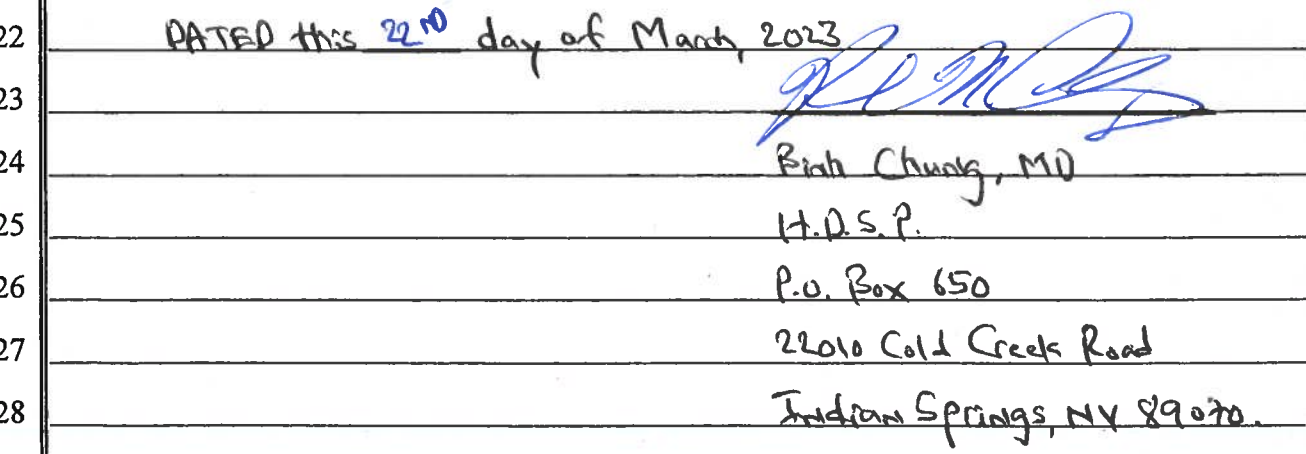 22 DATED this 22ND day of March, 2023
23
24 Binh Chung, MD
25 H.D.S.P.
26 P.O. Box 650
27 22010 Cold Creek Road
28 Indian Springs, NV 89070.